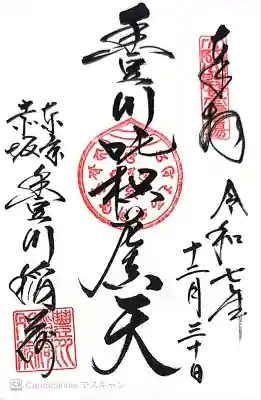 奉拝
令和七年
十二月三十日
豊川吒枳尼天
東京
赤坂
豊川稲荷
CamScanner でスキャン